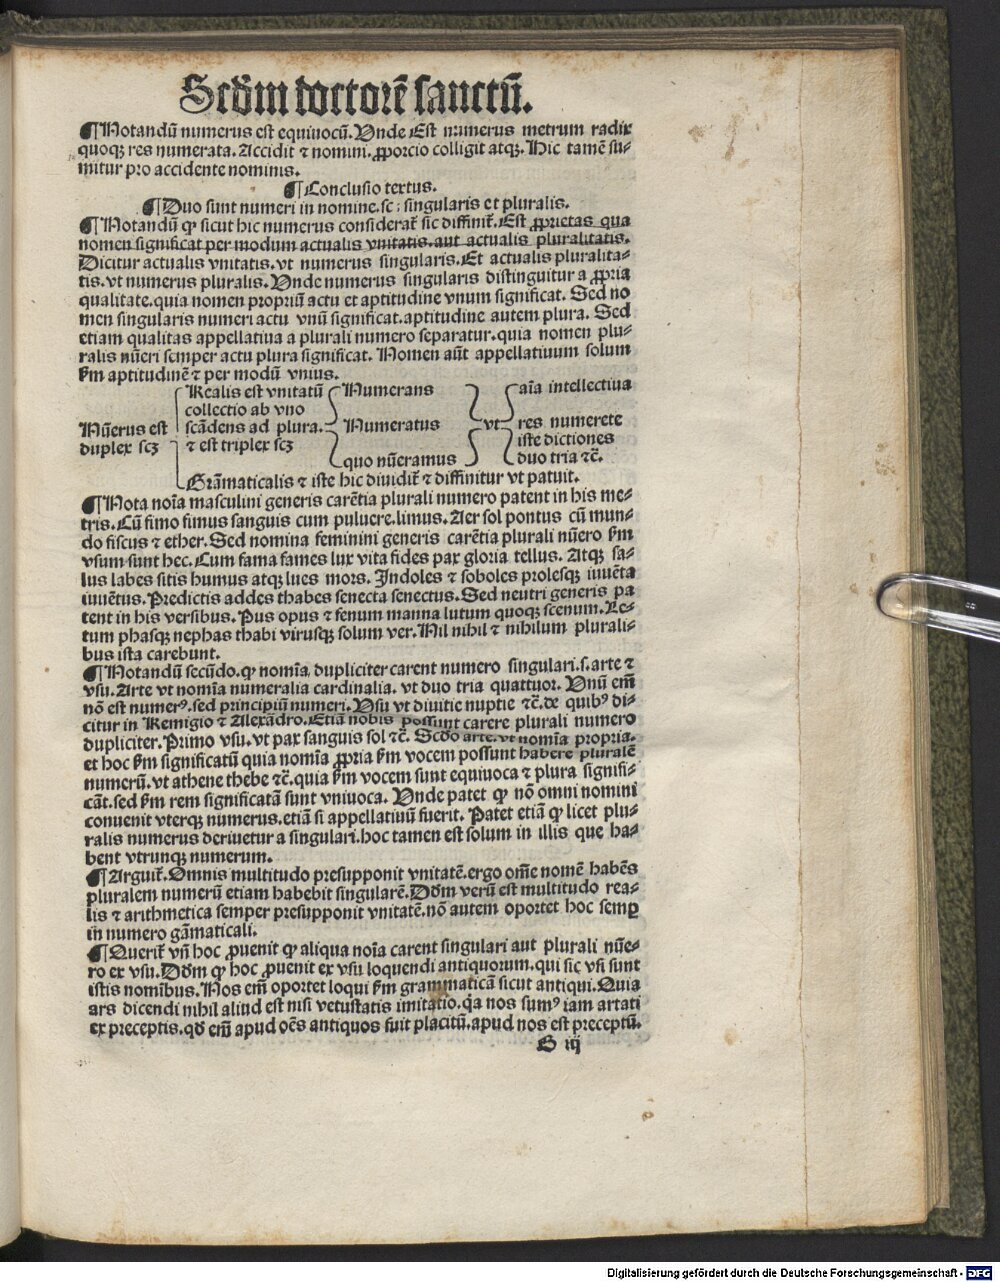 Scďm doctorē sanctū.
¶Notandū numerus est equiuocū. Vnde Est numerus metrum radix
quoqꝫ res numerata. Accidit ⁊ nomini. ꝓporcio colligit atqꝫ. Hic tamē su⸗
mitur pro accidente nominis.
¶Conclusio textus.
¶Duo sunt numeri in nomine. sc: singularis et pluralis.
¶Notandū ꝙ sicut hic numerus considerat̄ sic diffinit̄. Est ꝓprietas qua
nomen significat per modum actualis vnitatis. aut actualis pluralitatis.
Dicitur actualis vnitatis. vt numerus singularis. Et actualis pluralita⸗
tis. vt numerus pluralis. Vnde numerus singularis distinguitur a ꝓpria
qualitate. quia nomen propriū actu et aptitudine vnum significat. Sed no
men singularis numeri actu vnū significat. aptitudine autem plura. Sed
etiam qualitas appellatiua a plurali numero separatur. quia nomen plu⸗
ralis nūeri semper actu plura significat. Nomen aūt appellatiuum solum
ẜm aptitudinē ⁊ per modū vnius.
Nūerus est duplex scꝫ
Realis est vnitatū
collectio ab vno
scādens ad plura.
⁊ est triplex scꝫ
Numerans
Numeratus
quo nūeramus
vt
aīa intellectiua
res numerete
iste dictiones
duo tria ⁊c̄.
Grāmaticalis ⁊ iste hic diuidit̄ ⁊ diffinitur vt patuit.
¶Nota noīa masculini generis carētia plurali numero patent in his me⸗
tris. Cū fimo fimus sanguis cum puluere. limus. Aer sol pontus cū mun⸗
do fiscus ⁊ ether. Sed nomina feminini generis carētia plurali nūero ẜm
vsum sunt hec. Cum fama fames lux vita fides pax gloria tellus. Atqꝫ sa⸗
lus labes sitis humus atqꝫ lues mors. Indoles ⁊ soboles prolesqꝫ iuuēta
iuuētus. Predictis addes thabes senecta senectus. Sed neutri generis pa
tent in his versibus. Pus opus ⁊ fenum manna lutum quoqꝫ scenum. Le⸗
tum phasqꝫ nephas thabi virusqꝫ solum ver. Nil nihil ⁊ nihilum plurali⸗
bus ista carebunt.
¶Notandū secūdo. ꝙ nomīa dupliciter carent numero singulari. s. arte ⁊
vsu. Arte vt nomīa numeralia cardinalia. vt duo tria quattuor. Vnū em̄
nō est numerꝰ. sed principiū numeri. Vsu vt diuitie nuptie ⁊c̄. de quibꝰ di⸗
citur in Remigio ⁊ Alexādro. Etiā nobis possunt carere plurali numero
dupliciter. Primo vsu. vt pax sanguis sol ⁊c̄. Scďo arte. vt nomīa propria.
et hoc ẜm significatū quia nomīa ꝓpria ẜm vocem possunt habere pluralē
numerū. vt athene thebe ⁊c̄. quia ẜm vocem sunt equiuoca ⁊ plura signifi⸗
cāt. sed ẜm rem significatā sunt vniuoca. Vnde patet ꝙ nō omni nomini
conuenit vterqꝫ numerus. etiā si appellatiuū fuerit. Patet etiā ꝙ licet plu⸗
ralis numerus deriuetur a singulari. hoc tamen est solum in illis que ha⸗
bent vtrunqꝫ numerum.
¶Arguit̄. Omnis multitudo presupponit vnitatē. ergo om̄e nomē habēs
pluralem numerū etiam habebit singularē. Dďm verū est multitudo rea⸗
lis ⁊ arithmetica semper presupponit vnitatē. nō autem oportet hoc semꝑ
in numero gāmaticali.
¶Querit̄ vn̄ hoc ꝓuenit ꝙ aliqua noīa carent singulari aut plurali nūe⸗
ro ex vsu. Dďm ꝙ hoc ꝓuenit ex vsu loquendi antiquorum. qui sic vsi sunt
istis nomībus. Nos em̄ oportet loqui ẜm grammaticā sicut antiqui. Quia
ars dicendi nihil aliud est nisi vetustatis imitatio. q̄a nos sumꝰ iam artati
ex preceptis. qď em̄ apud oēs antiquos fuit placitū. apud nos est preceptū.
G iij
Digitalisierung gefördert durch die Deutsche Forschungsgemeinschaft - DFG